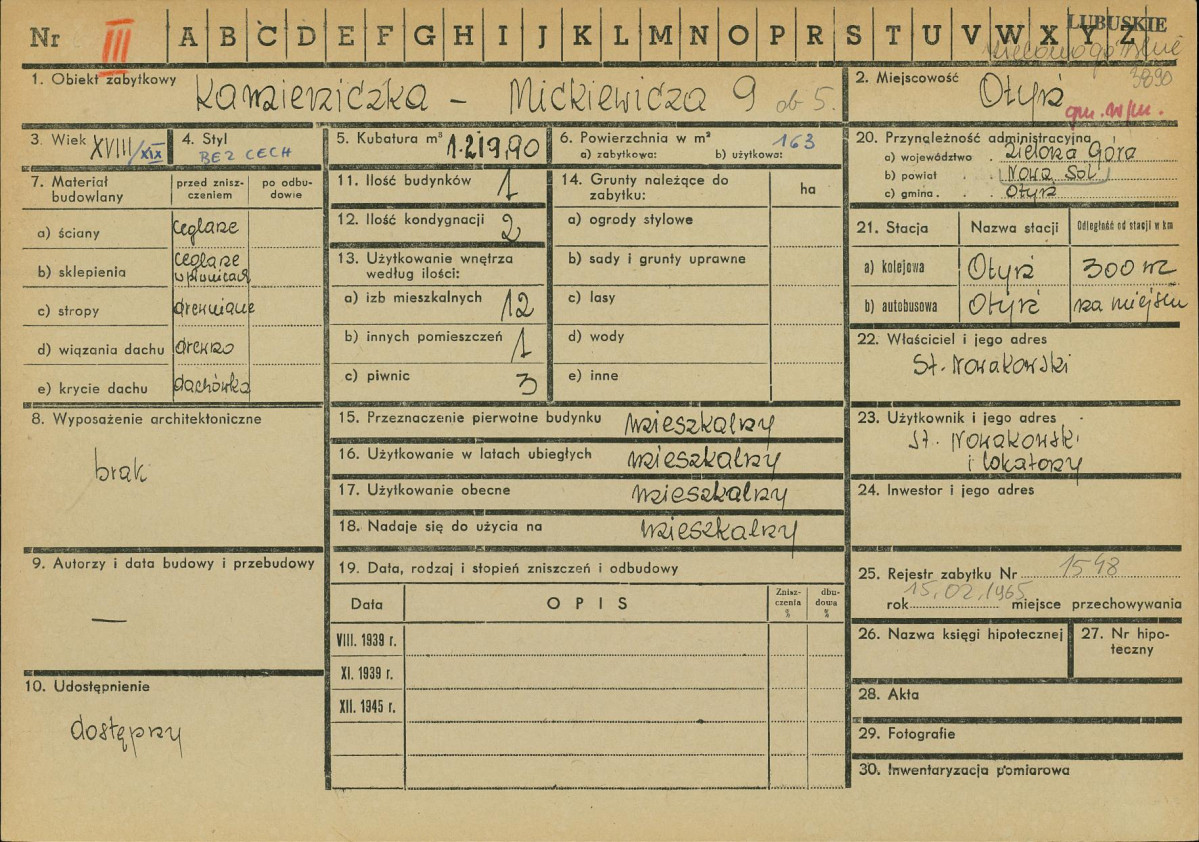 Nr III A B C D E F G H I J K L M N O P R S T U V W X Y Z LUBUSKIE
zielonogórskie
3890
1. Obiekt zabytkowy Kamieniczka - Mickiewicza 9 ob 5.
2. Miejscowość Otyń
gm. w/m.
3. Wiek XVIII/XIX
4. Styl BEZ CECH
5. Kubatura m³ 1.219,90
6. Powierzchnia w m² 163
a) zabytkowa: b) użytkowa:
20. Przynależność administracyjna
a) województwo . Zielona Góra
b) powiat . . Nowa Sól
c) gmina . . Otyń
7. Materiał budowlany
przed zniszczeniem
po odbudowie
a) ściany ceglane
b) sklepienia ceglane w piwnicach
c) stropy drewniane
d) wiązania dachu drewno
e) krycie dachu dachówka
11. Ilość budynków 1
12. Ilość kondygnacji 2
13. Użytkowanie wnętrza
według ilości:
a) izb mieszkalnych 12
b) innych pomieszczeń 1
c) piwnic 3
14. Grunty należące do
zabytku:
ha
a) ogrody stylowe
b) sady i grunty uprawne
c) lasy
d) wody
e) inne
21. Stacja Nazwa stacji Odległość od stacji w km
a) kolejowa Otyń 300 m
b) autobusowa Otyń na miejscu
22. Właściciel i jego adres
St. Nowakowski
8. Wyposażenie architektoniczne
brak
15. Przeznaczenie pierwotne budynku mieszkalny
16. Użytkowanie w latach ubiegłych mieszkalny
17. Użytkowanie obecne mieszkalny
18. Nadaje się do użycia na mieszkalny
23. Użytkownik i jego adres
St. Nowakowski
i lokatorzy
24. Inwestor i jego adres
9. Autorzy i data budowy i przebudowy
—
19. Data, rodzaj i stopień zniszczeń i odbudowy
Data OPIS Znisz-czenia % dbu-dowa %
VIII. 1939 r.
XI. 1939 r.
XII. 1945 r.
25. Rejestr zabytku Nr 1548
15.02.1965
rok miejsce przechowywania
26. Nazwa księgi hipotecznej
27. Nr hipo-
teczny
10. Udostępnienie
dostępny
28. Akta
29. Fotografie
30. Inwentaryzacja pomiarowa